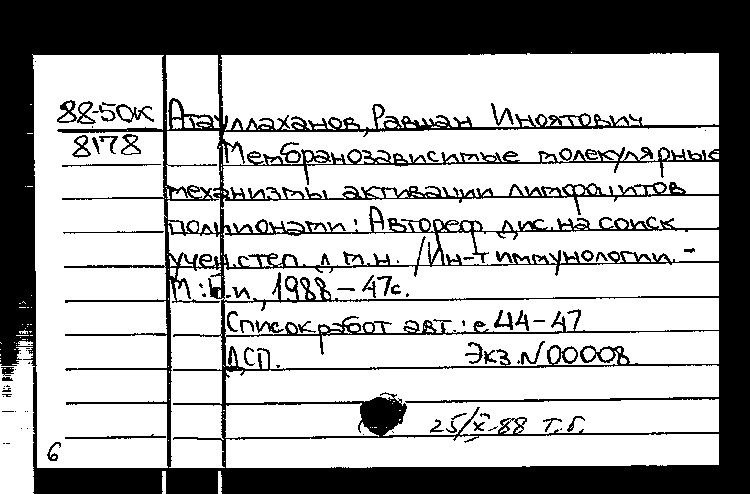 88-50к Атауллаханов, Равшан Иноятович
8178 Мембранозависимые молекулярные
механизмы активации лимфоцитов
полиионами: Автореф. дис. на соиск.
учен. степ. д.м.н. / Ин-т иммунологии. -
М.: Б.и., 1988. - 47с.
Список работ авт.: с 44-47
ДСП. Экз. N 00008.
25/X-88 Т.Б.
6